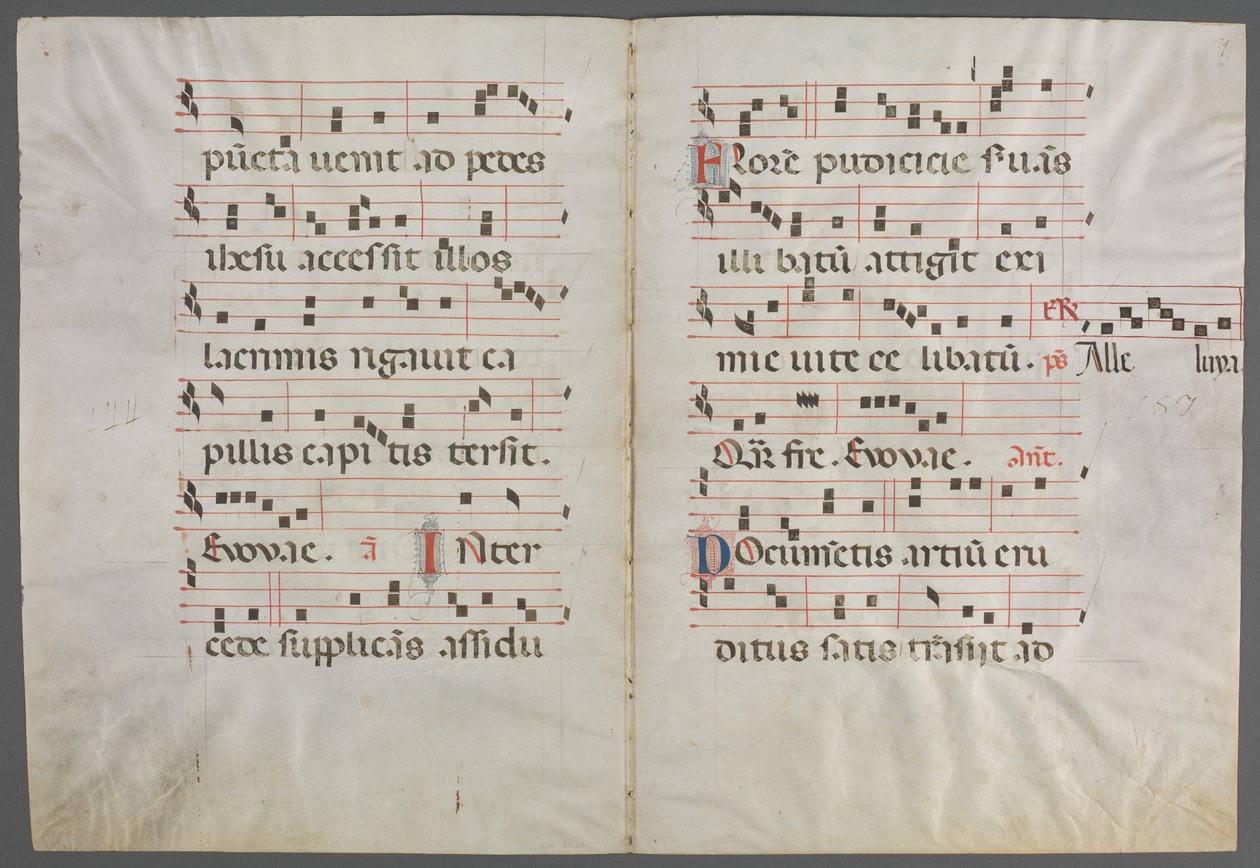 pūcta uenit ad pedes
ihesu accessit illos
lacrimis rigauit ca
pillis capitis tersit.
Evovae. ā INter
cede supplicās assidu
FLorē pudicicie suās
illibatū attigit exi
mie uite ce libatū. ps̄ Alle luya
Evovae. Ant.
DOcumētis artiū eru
ditus satis trāsijt ad